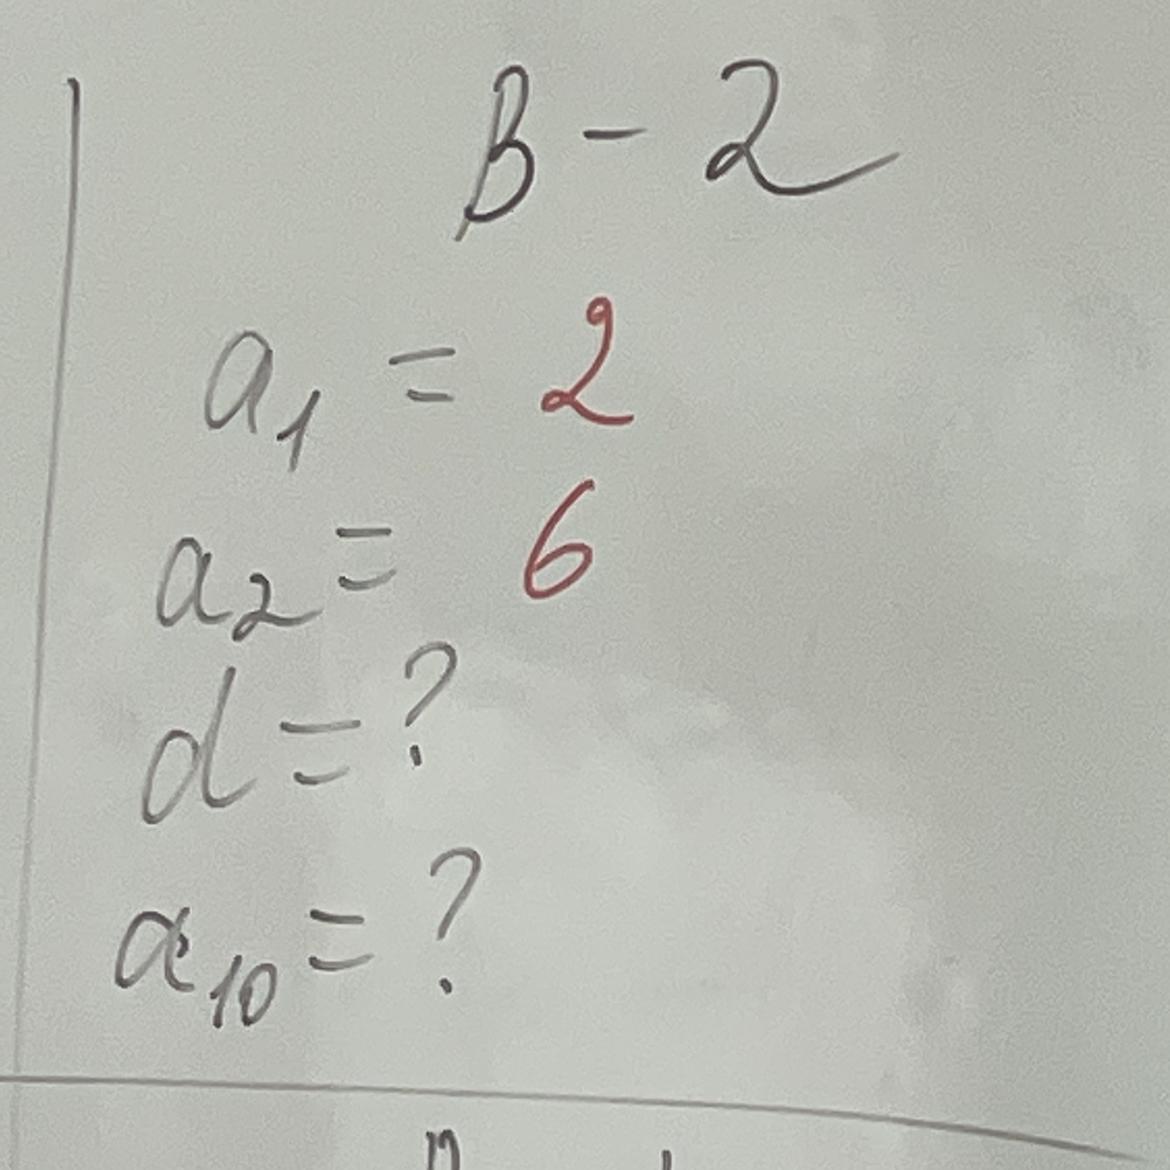 В - 2
a₁ = 2
a₂ = 6
d = ?
a₁₀ = ?